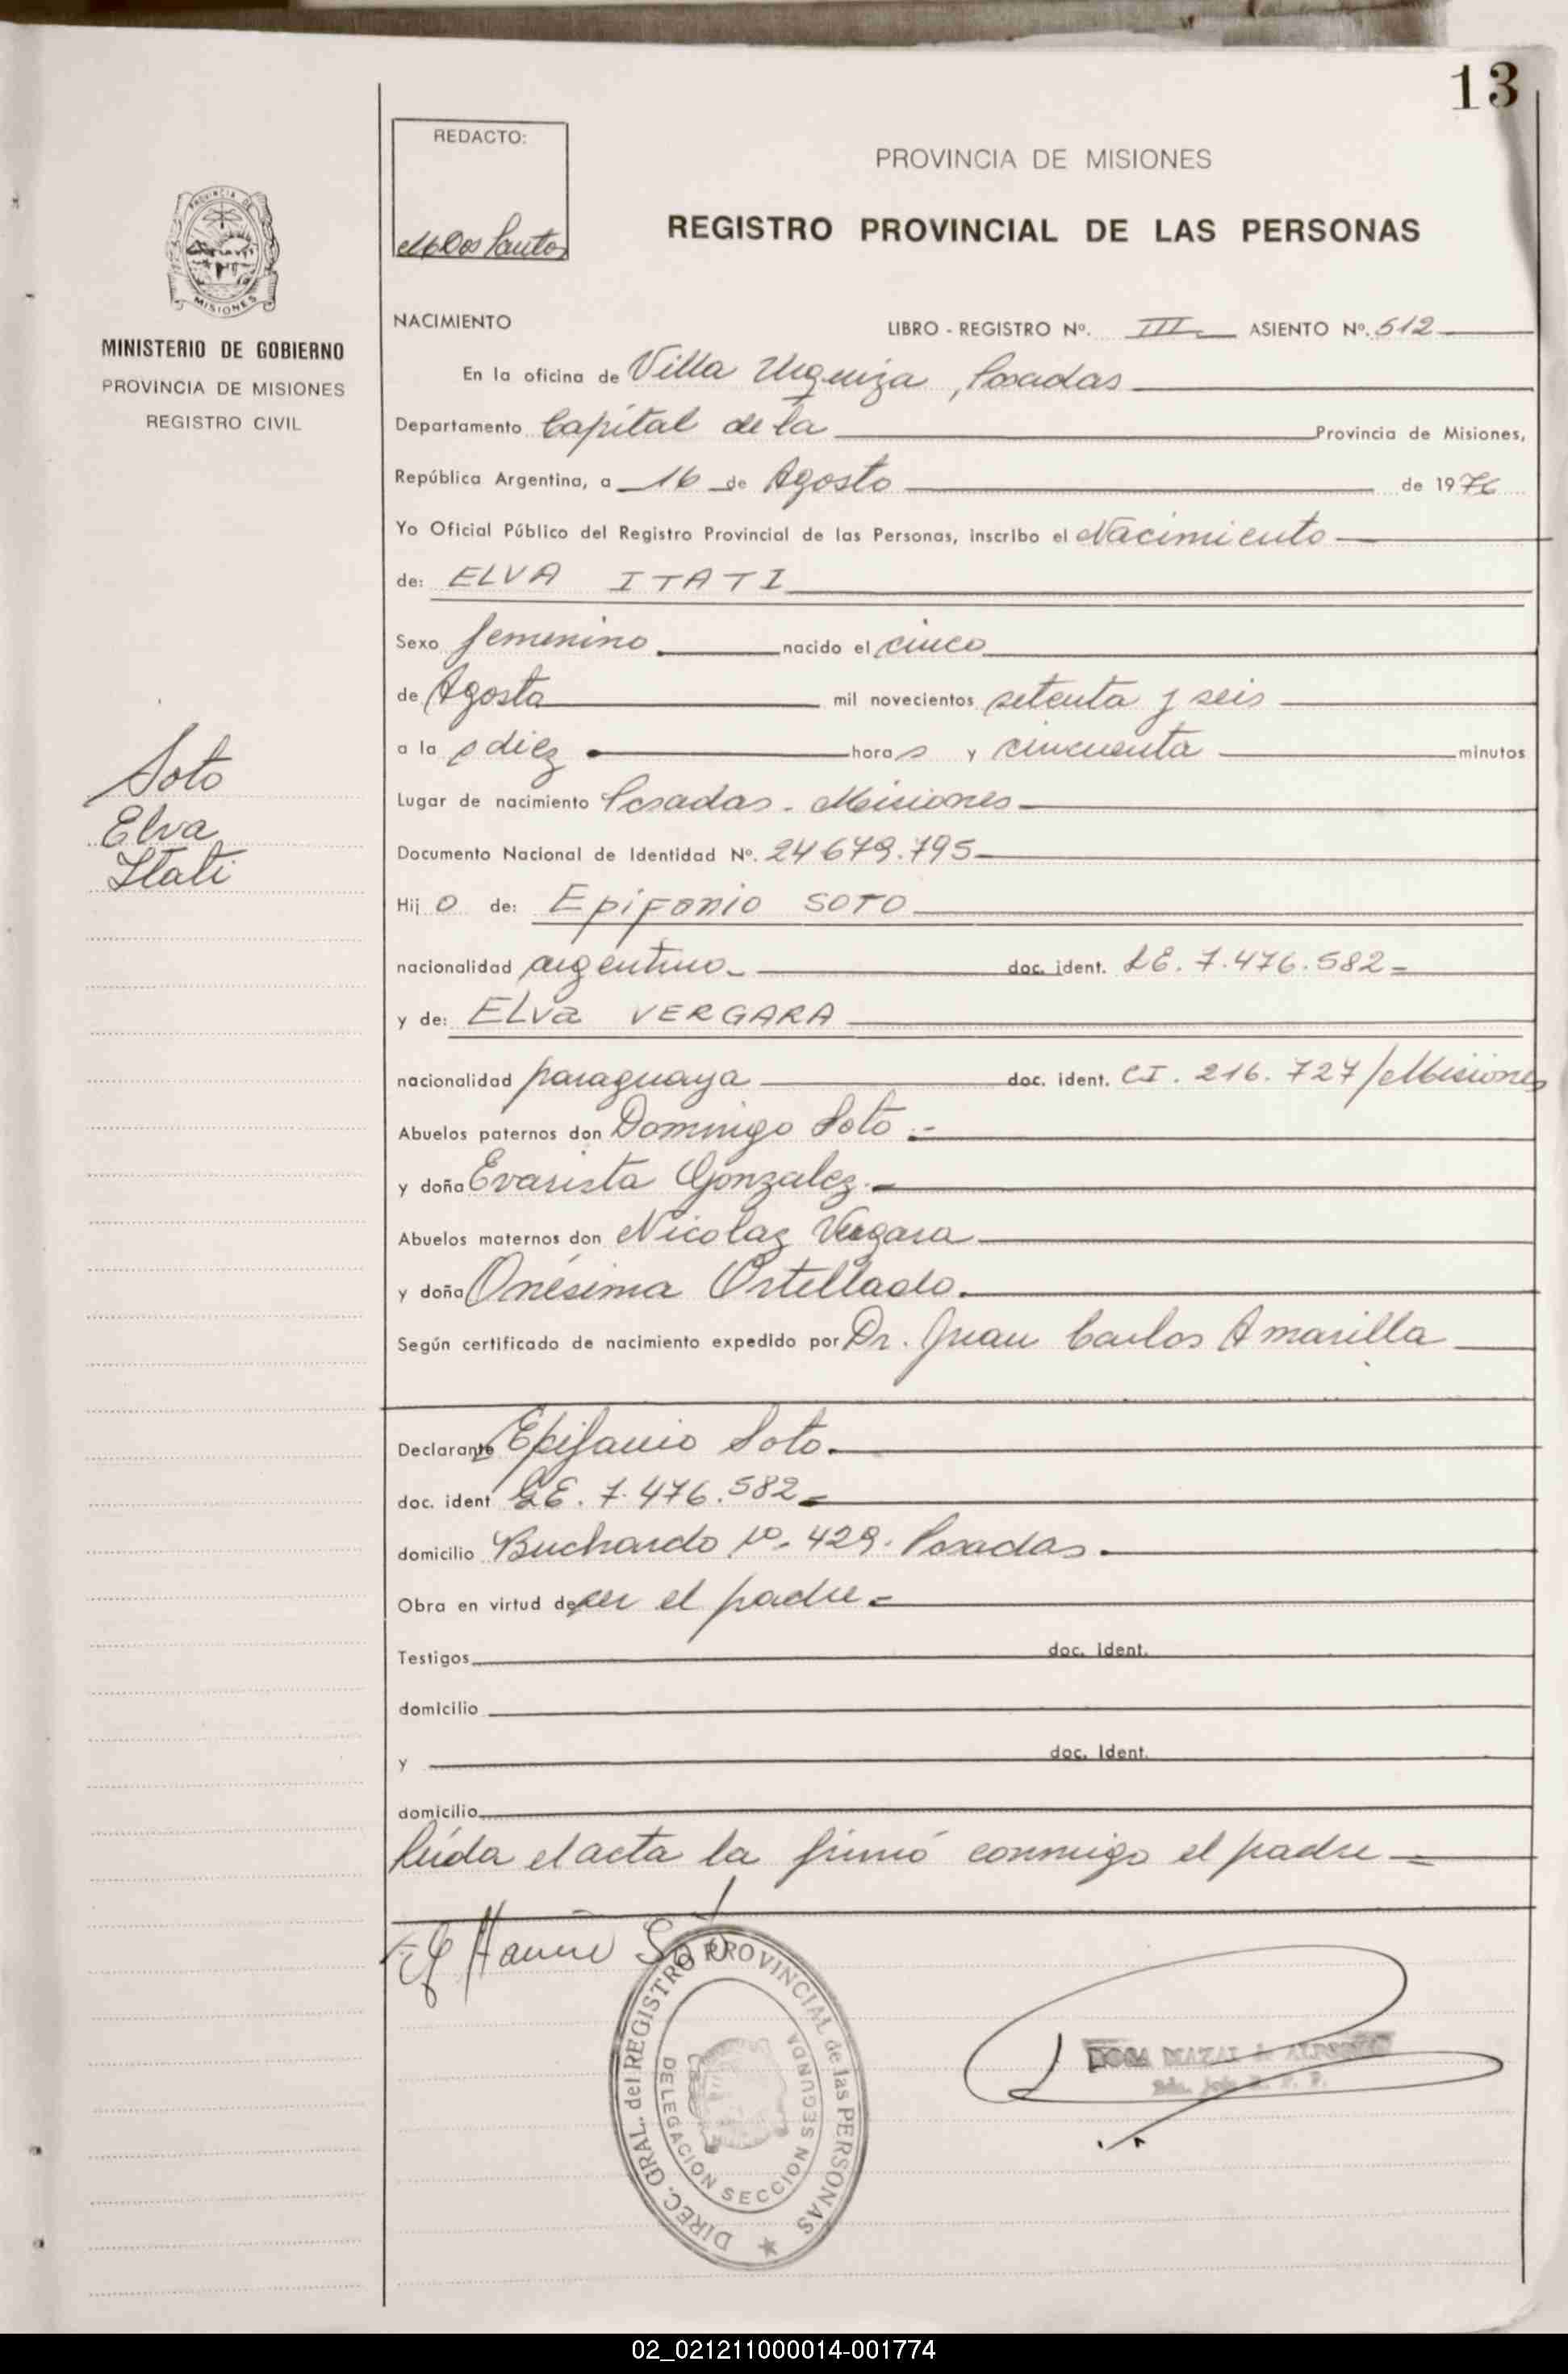 13
REDACTO:
PROVINCIA DE MISIONES
REGISTRO PROVINCIAL DE LAS PERSONAS
PROVINCIA DE
MISIONES
MINISTERIO DE GOBIERNO
PROVINCIA DE MISIONES
REGISTRO CIVIL
NACIMIENTO
LIBRO - REGISTRO Nº. III ASIENTO Nº. 512
En la oficina de Villa Urquiza, Posadas
Departamento Capital de la Provincia de Misiones,
República Argentina, a 16 de Agosto de 1976
Yo Oficial Público del Registro Provincial de las Personas, inscribo el Nacimiento
de: ELVA ITATI
Sexo femenino nacido el cinco
de Agosto mil novecientos setenta y seis
a la s diez horas y cincuenta minutos
Soto
Elva
Itati
Lugar de nacimiento Posadas - Misiones
Documento Nacional de Identidad Nº. 24679.795
Hij o de: Epifanio SOTO
nacionalidad argentino doc. ident. LE. 7.476.582
y de: ELva VERGARA
nacionalidad paraguaya doc. ident. CI. 216.727/Misiones
Abuelos paternos don Domingo Soto
y doña Evarista Gonzalez
Abuelos maternos don Nicolaz Vergara
y doña Onesima Ortellado
Según certificado de nacimiento expedido por Dr. Juan Carlos Amarilla
Declarante Epifanio Soto
doc. ident LE. 7.476.582
domicilio Buchardo Nº 429. Posadas
Obra en virtud de ser el padre
Testigos doc. ident.
domicilio
y doc. ident.
domicilio
leída el acta la firmó conmigo el padre
DIREC. GRAL. del REGISTRO PROVINCIAL de las PERSONAS
DELEGACION SECCION SEGUNDA
02_021211000014-001774